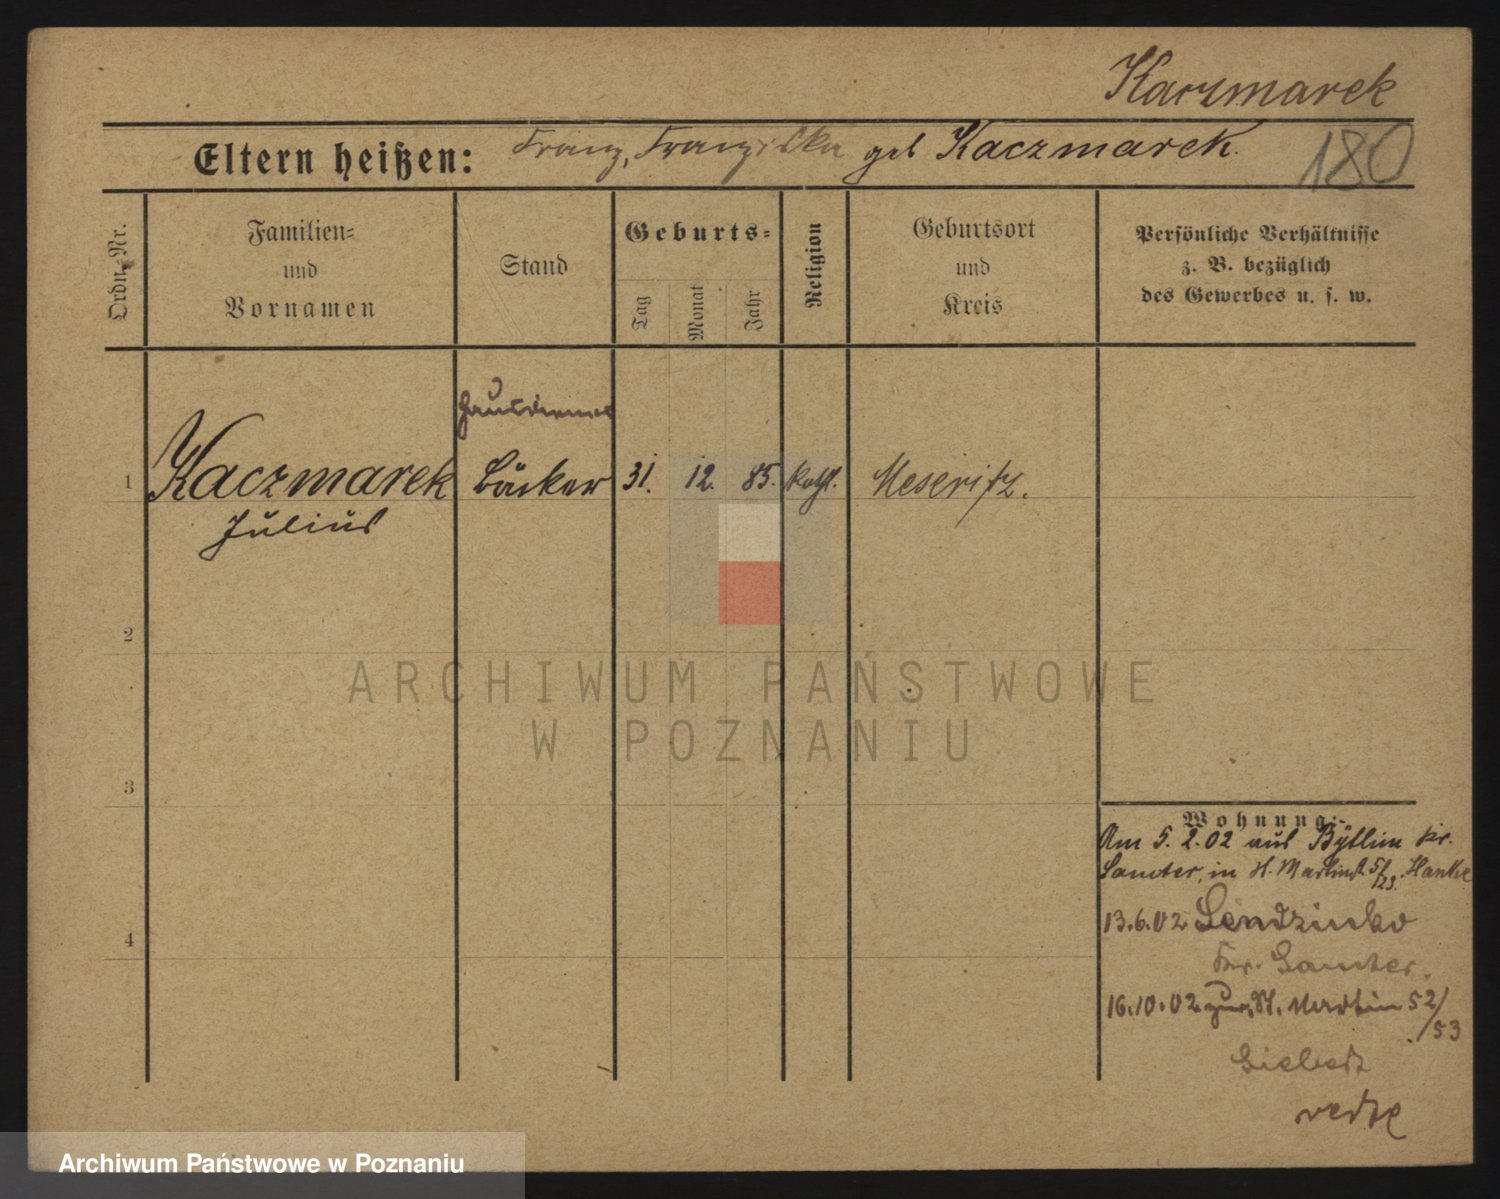 Kaczmarek
Eltern heißen: Franz, Franziska geb Kaczmarek.
180
Ordn.-Nr.
Familien-
und
Vornamen
Stand
Geburts-
Tag
Monat
Jahr
Religion
Geburtsort
und
Kreis
Persönliche Verhältnisse
z. B. bezüglich
des Gewerbes u. s. w.
Hausdiener
1 Kaczmarek Bäcker 31. 12. 85. kath. Meseritz.
Julius
2
3
4
ARCHIWUM PAŃSTWOWE
W POZNANIU
Wohnung:
Am 5. 2. 02 aus Bythin Kr.
Samter, in St. Martinst. 52/53. Hanke
13.6.02
Kr. Samter.
16.10.02 zur. St. Martin 52/
53
Archiwum Państwowe w Poznaniu